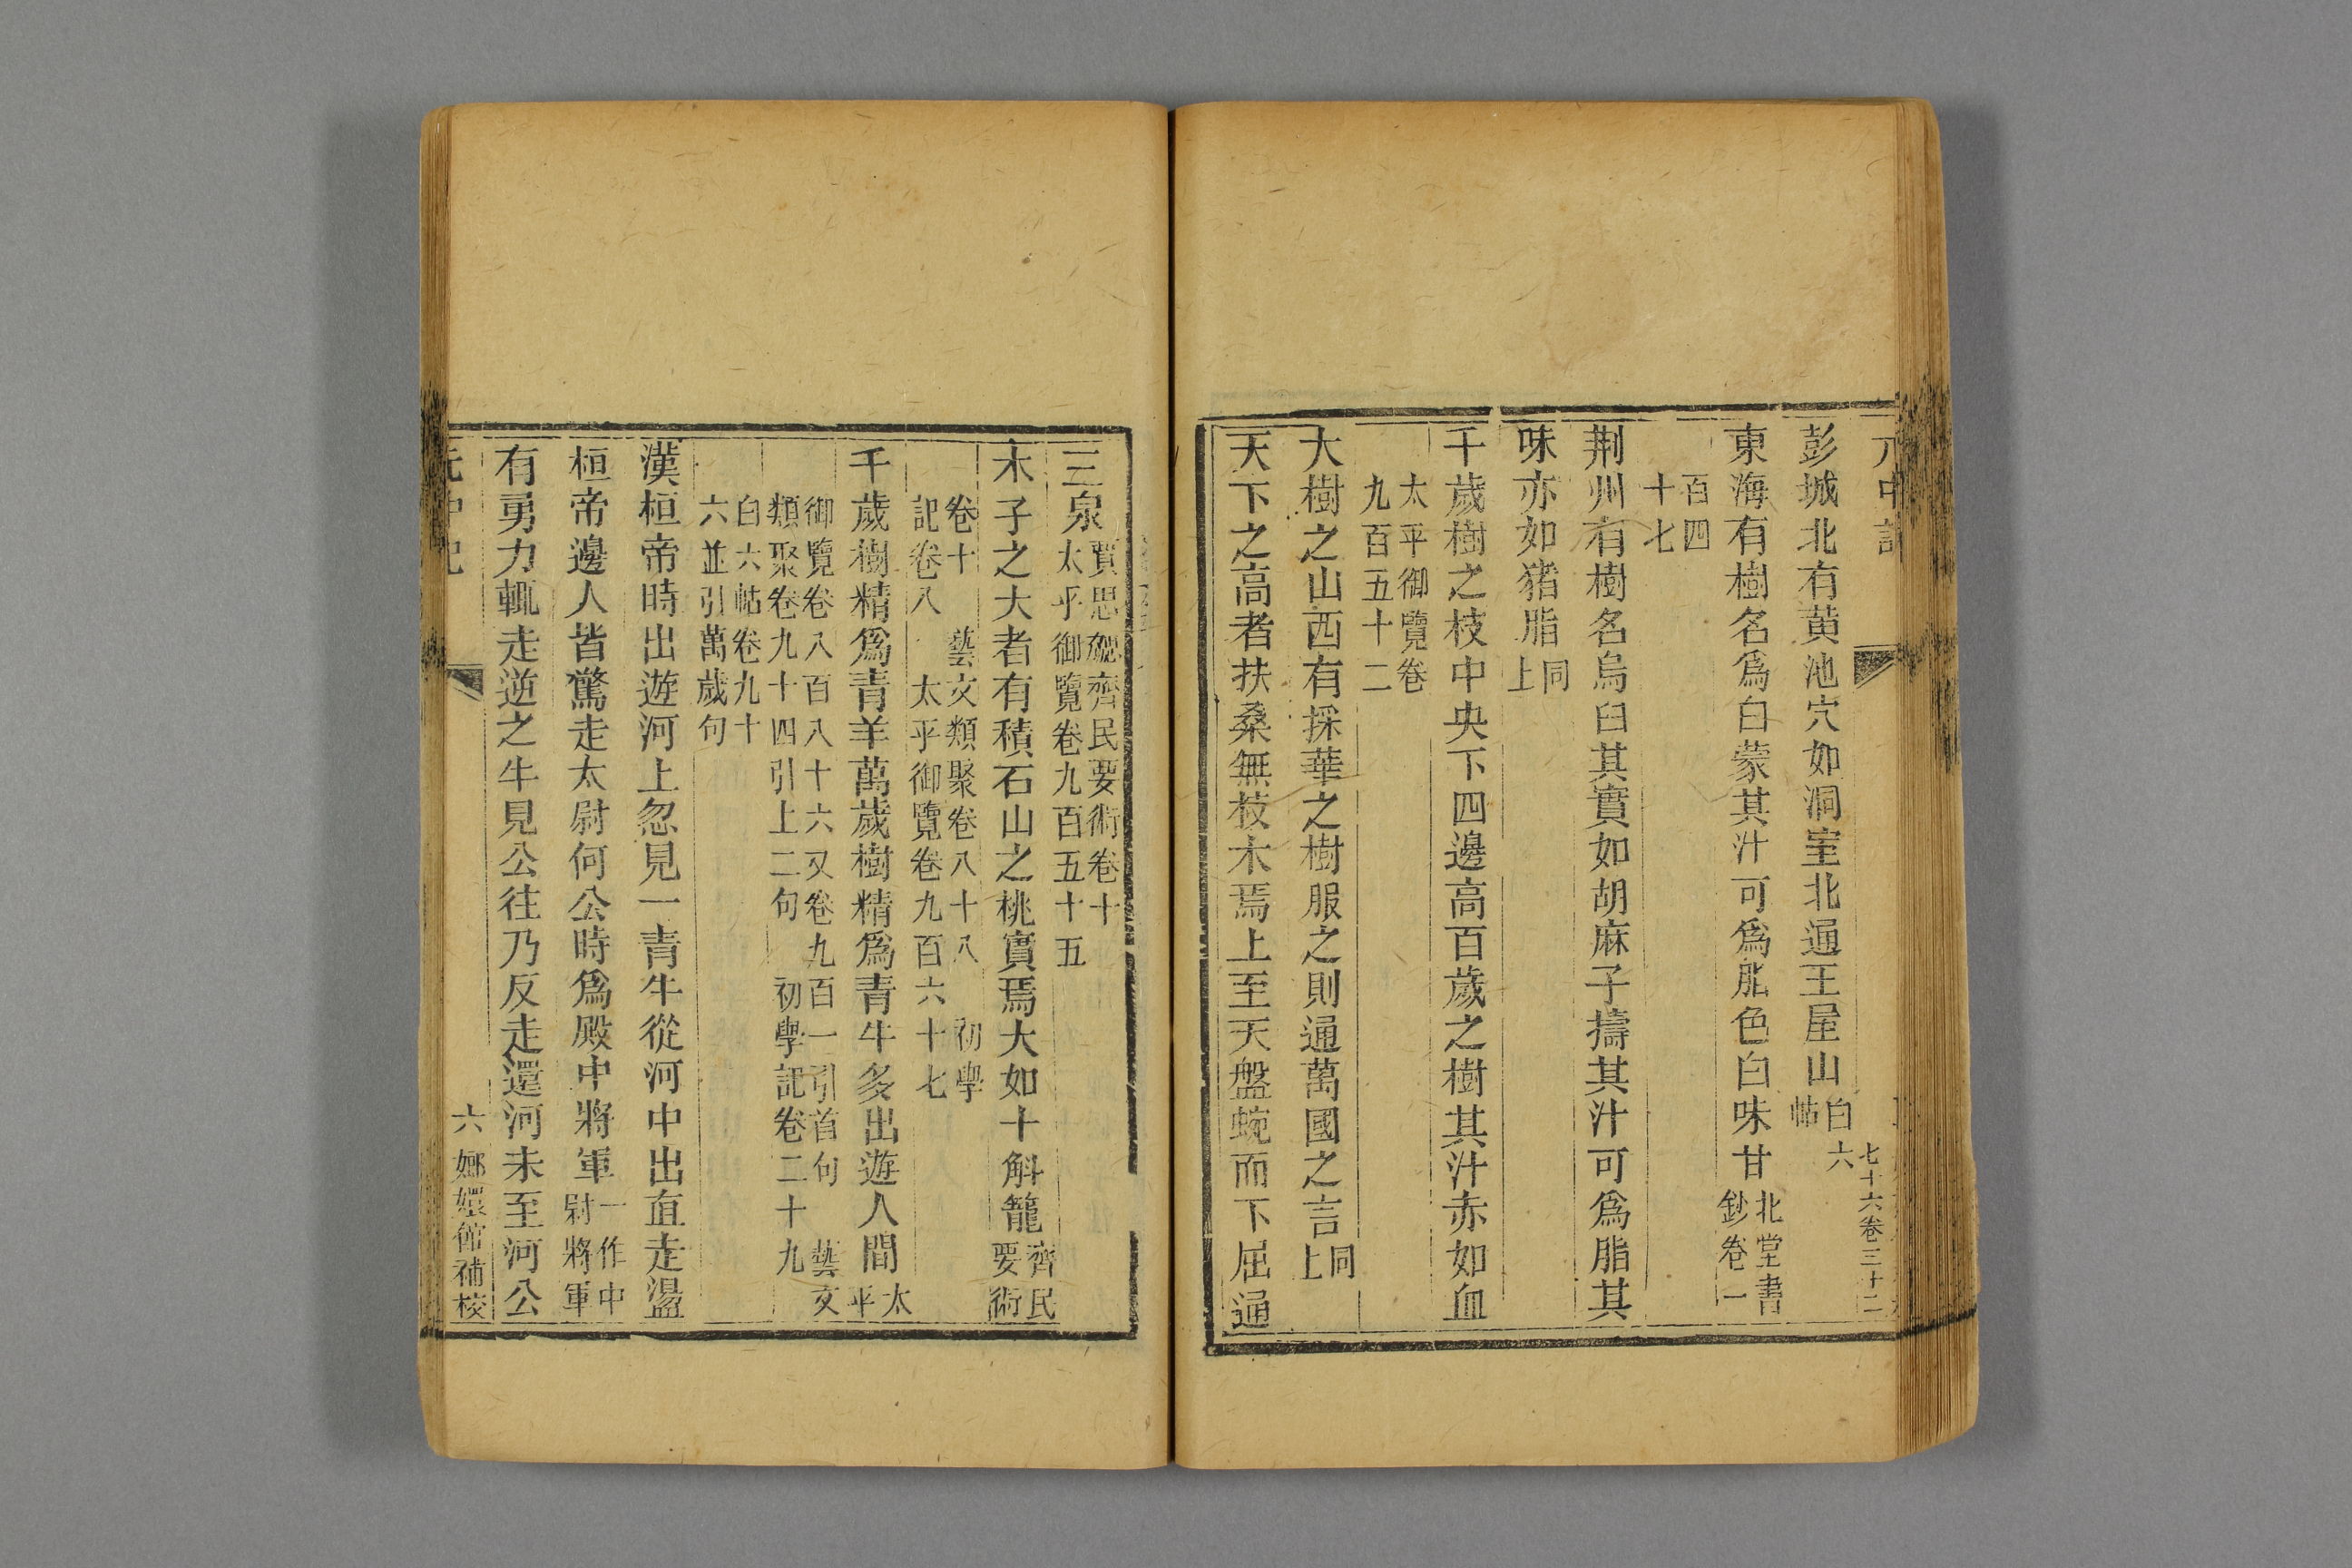 中記
七十六卷三十二
彭城北有黃池穴如洞室北通王屋山白六帖
東海有樹名爲白蒙其汁可爲脂色白味甘北堂書鈔卷一
百四十七
荆州有樹名烏臼其實如胡麻子擣其汁可爲脂其
味亦如猪脂同上
千歲樹之枝中央下四邊高百歲之樹其汁赤如血
太平御覽卷九百五十二
大樹之山西有採華之樹服之則通萬國之言同上
天下之高者扶桑無枝木焉上至天盤蜿而下屈通
三泉賈思勰齊民要術卷十太平御覽卷九百五十五
木子之大者有積石山之桃實焉大如十斛籠齊民要術
卷十 藝文類聚卷八十八 初學記卷八 太平御覽卷九百六十七
千歲樹精爲青羊萬歲樹精爲青牛多出遊人間太平
御覽卷八百八十六又卷九百一引首句 藝文類聚卷九十四引上二句 初學記卷二十九
白六帖卷九十六並引萬歲句
漢桓帝時出遊河上忽見一青牛從河中出直走盪
桓帝邊人皆驚走太尉何公時爲殿中將軍一作中尉將軍
有勇力輒走逆之牛見公往乃反走還河未至河公
六 嫏嬛館補校